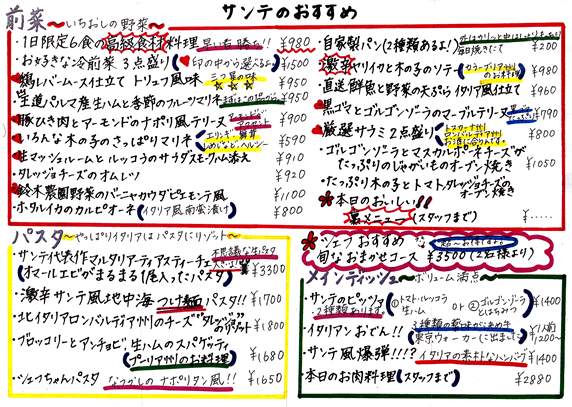 サンテのおすすめ
前菜～いちおしの野菜～
・1日限定6食の高級食材料理 早い者勝ち!! ¥980
・お好きな冷前菜 3点盛り(♥印の中から選べるよ) ¥1500
鶏レバームース仕立て トリュフ風味 ¥950
王道パルマ産生ハムと季節のフルーツマリネ ¥950
豚ひき肉とアーモンドのナポリ風テリーヌ ¥900
・いろんな木の子のさっぱりマリネ ¥590
生マッシュルームとルッコラのサラダ ¥910
・タレッジョチーズのオムレツ ¥920
鈴木農園野菜のバーニャカウダピエモンテ風 ¥1100
・ホタルイカのカルピオーネ(イタリア風南蛮漬け) ¥800
・自家製パン(2種類あるよ!) ¥200
・激辛ヤリイカと木の子のソテー ¥980
・直送鮮魚と野菜の天ぷら イタリア風仕立て ¥960
黒ゴマとゴルゴンゾーラのマーブルテリーヌ ¥190
厳選サラミ2点盛り ¥800
・ゴルゴンゾーラとマスカルポーネチーズが
たっぷりのじゃがいものオーブン焼き ¥1050
・たっぷり木の子とトマト、タレッジョチーズの
オーブン焼き
本日のおいしい!!
裏メニュー(スタッフまで) ¥……
パスタ～やっぱりイタリアはパスタにリゾット～
・サンテ代表作マルタリアーティアスティーチェ 不思議な生パスタ
(オマールエビがまるまる1尾入ったパスタ) ¥3300
・激辛サンテ風地中海つけ麺パスタ!! ¥1700
・北イタリアロンバルディア州のチーズ"タレッジョ"のリゾット ¥1800
・ブロッコリーとアンチョビ、生ハムのスパゲッティ
(プーリア州のお料理) ¥1680
・シェフちゃんパスタ なつかしのナポリタン風!! ¥1650
シェフおすすめな
旬なおまかせコース ¥3500(2名様より)
メインディッシュ～ボリューム満点～
・サンテのピッツァ
2種類あります。
①トマト・ルッコラ
生ハム
or
②ゴルゴンゾーラ
とはちみつ
¥1400
・イタリアンおでん!!
3種類の薬味がきめ手
東京ウォーカーに出ました
1人前
¥1200～
・サンテ風爆弾!!!? イタリアの素朴なハンバーグ ¥1400
・本日のお肉料理(スタッフまで) ¥2880